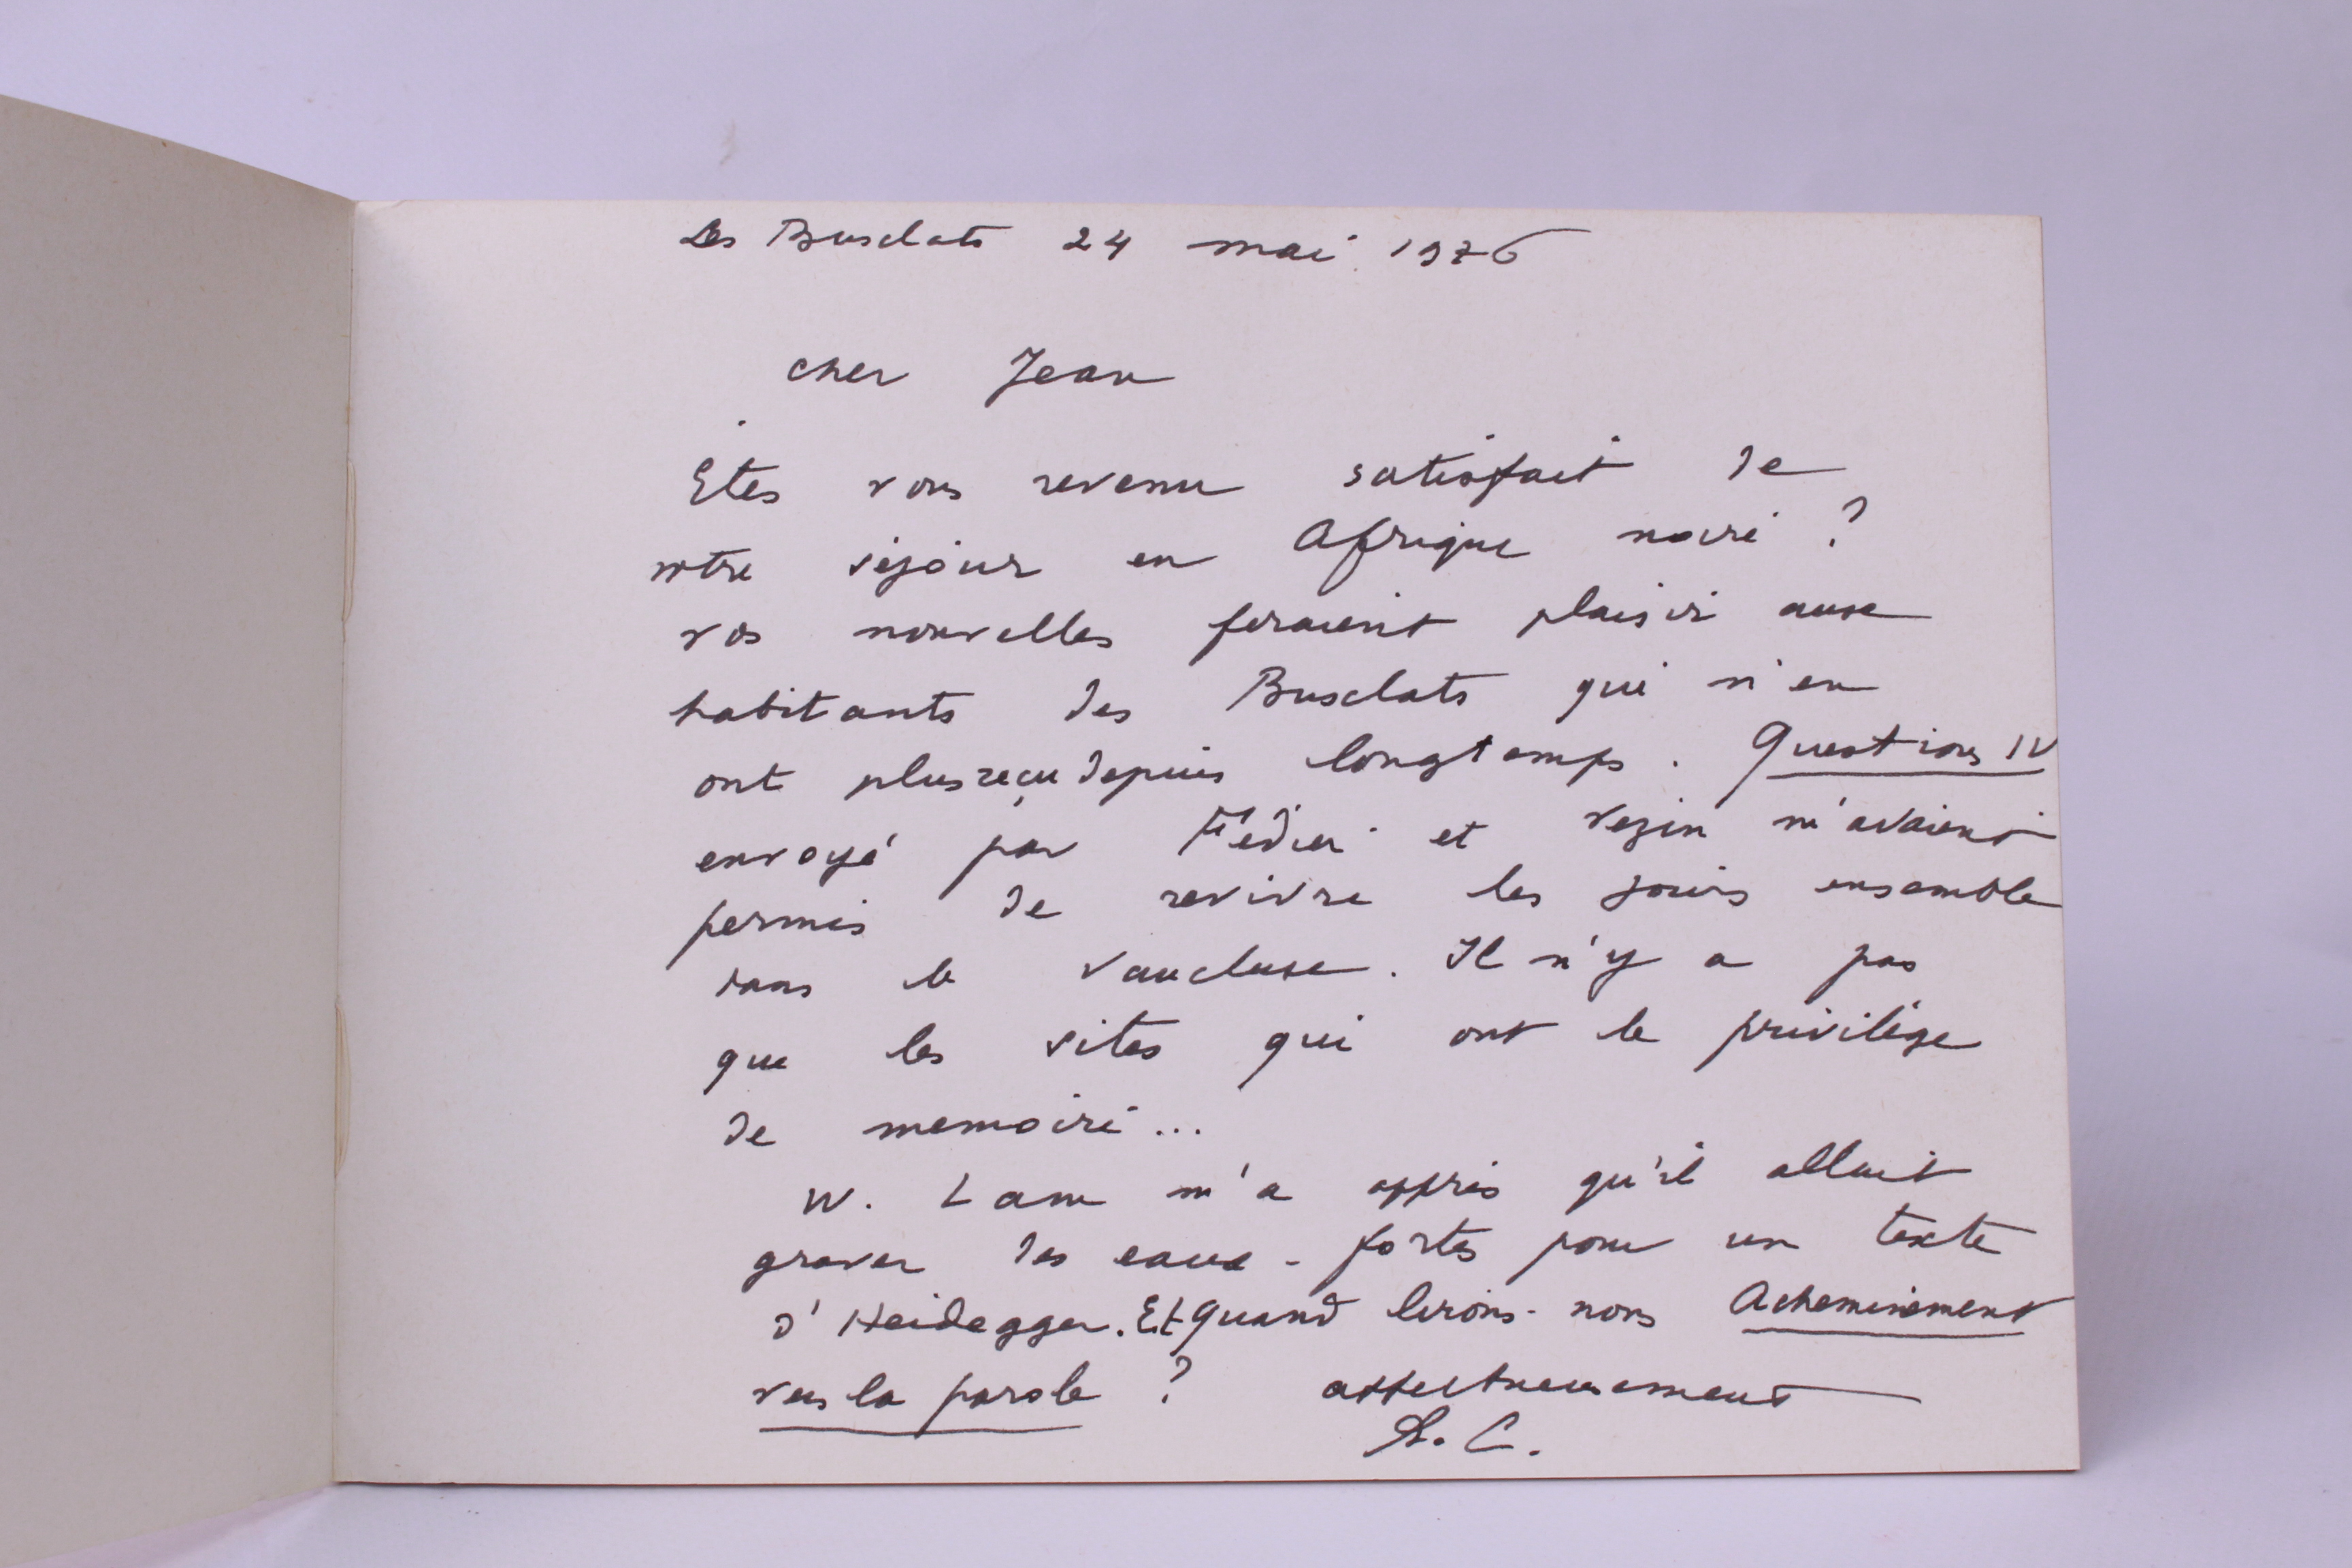 Les Busclats 24 mai 1976
cher Jean
Etes vous revenu satisfait de
votre séjour en Afrique noire ?
vos nouvelles feraient plaisir aux
habitants des Busclats qui n'en
ont plus reçu depuis longtemps. Questions IV
envoyé par Fédier et Vezin m'avaient
permis de revivre les jours ensemble
dans le Vaucluse. Il n'y a pas
que les sites qui ont le privilège
de memoire...
W. Lam m'a appris qu'il allait
graver des eaux-fortes pour un texte
d'Heidegger. Et quand lirons-nous Acheminement
vers la parole ? affectueusement
R. C.